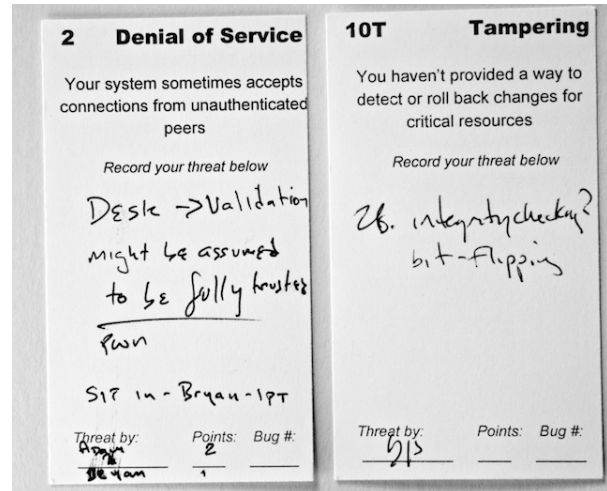 2 Denial of Service
Your system sometimes accepts
connections from unauthenticated
peers
Record your threat below
Desk -> Validation
might be assumed
to be fully trusted
pwn
in - Bryan - 1PT
Threat by: Points: Bug #:
2
Bryan 1
10T Tampering
You haven't provided a way to
detect or roll back changes for
critical resources
Record your threat below
integritychecking?
bit-flipping
Threat by: Points: Bug #: